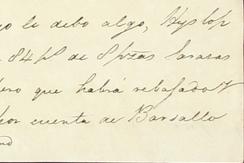 go le debo algo, Hyslop
84 p^s de 8 ptas
ero que habrá rebajado Y
por cuenta de Barsallo